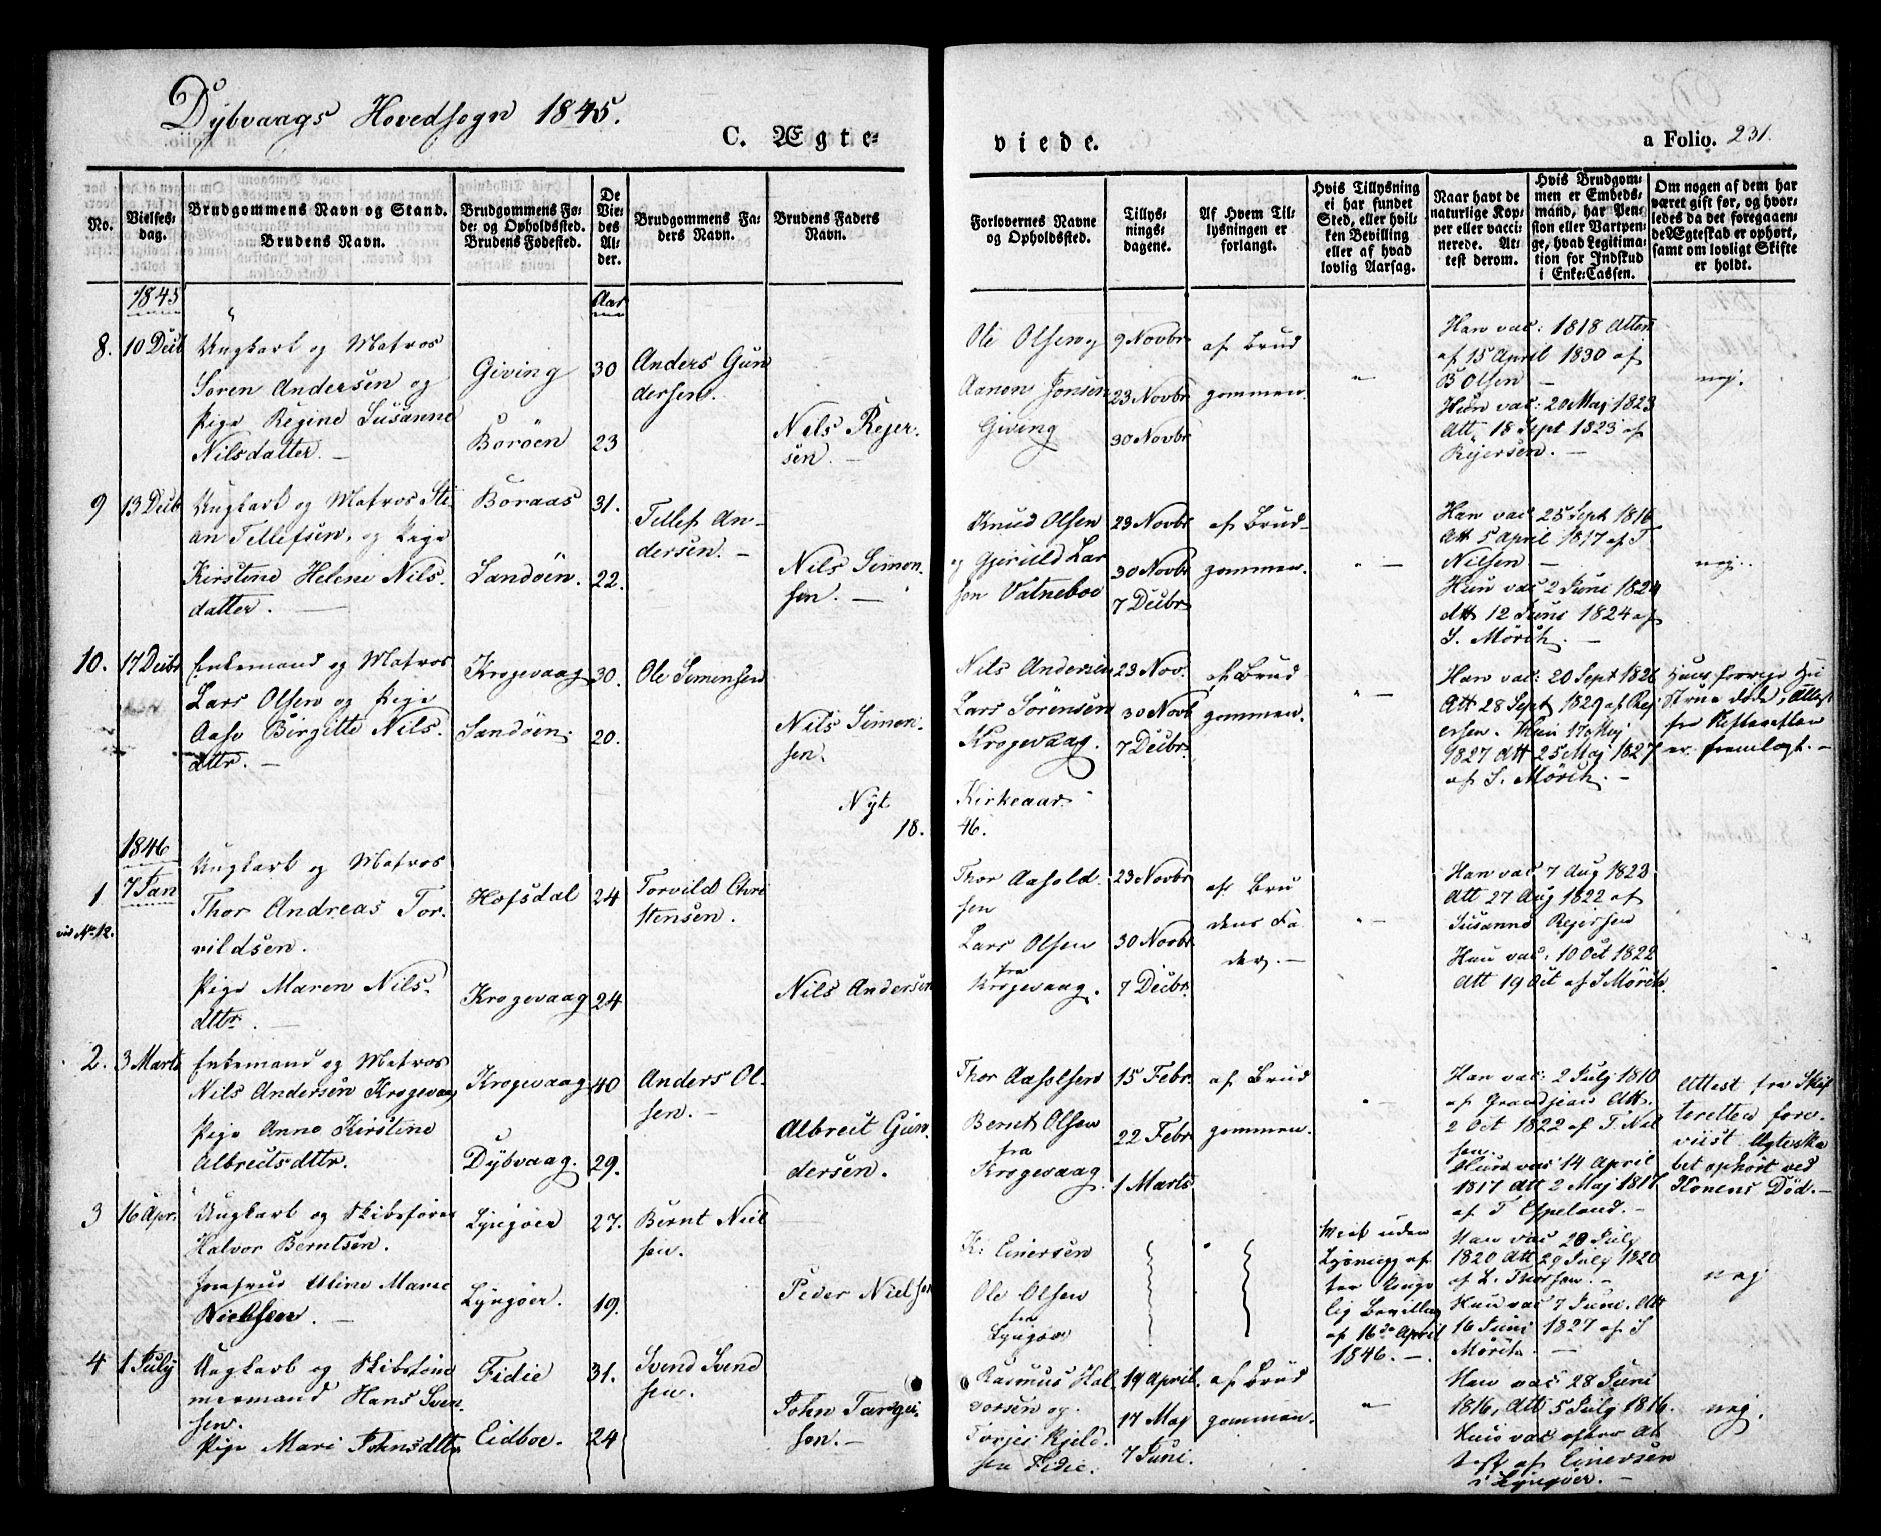 Dybvaags Hovedsogn 1845.
C. Ægte-
viede.
a Folio. 231.
No.
Vielses-
dag.
Brudgommens Navn og Stand.
Brudens Navn.
Brudgommens Fø-
de- og Opholdssted.
Brudens Fødested.
De
Vie-
des
Al-
der.
Brudgommens Fa-
ders Navn.
Brudens Faders
Navn.
Forlovernes Navne
og Opholdssted.
Tillys-
nings-
dagene.
Af Hvem Til-
lysningen er
forlangt.
Hvis Tillysning
ei har fundet
Sted, eller hvil-
ken Bevilling
eller af hvad
lovlig Aarsag.
Naar havt de
naturlige Kop-
per eller vacci-
nerede. At-
test derom.
Hvis Brudgom-
men er Embeds-
mand, har Pen-
sion eller Vartpen-
ge, hvad Legitima-
tion for Indskud
i Enke-Cassen.
Om nogen af dem har
været gift før, og hvor-
ledes da det foregaaen-
de Ægteskab er ophørt,
samt om lovligt Skifte
er holdt.
1845
Aar
8.
10 Decb
Ungkarl og Matros
Søren Andersen og
Pige Regine Susanne
Nilsdatter. —
Giving
Borøen
30
23
Anders Gun
dersen.
Nils Rejer-
sen. —
Ole Olsen
Aanon Jonsen
Giving
9 Novbr
23 Novbr
30 Novbr
af Brud
gommen.
Han vac: 1818 Atten
af 15 April 1830 af
B Olsen —
Hun vac: 20 Maj 1823
Att 18 Sept 1823 af
Rejersen. —
nej.
9
13 Decb
Ungkarl og Matros Sti-
an Tellefsen, og Pige
Kirstine Helene Nils-
datter. —
Boraas
Sandøen.
31.
22.
Tellef An-
dersen. —
Nils Simon-
sen. —
Knud Olsen
og Gjeruld Lar
sen Vatneboe
23 Novbr
30 Novbr
7 Decbr
af Brud-
gommen.
Han vac 25 Sept 1816
Att 5 April 1817 af T
Nilsen —
Hun vac 2 Juni 1824
Att 12 Juni 1824 af
S. Mörch. —
nej.
10.
17 Decbr
Enkemand og Matros
Lars Olsen og Pige
Aase Birgitte Nils-
dttr. —
Krogevaag
Sandøen.
30.
20.
Ole Simensen
Nils Simon-
sen.
Nils Andersen
Lars Sörensen
Krogevaag.
23 Nov.
30 Novb
7 Decbr.
af Brud
gommen.
Han vac: 20 Sept 1826
Att 28 Sept 1829 af Rej
ersen. Hun 17 Maj
1827 Att 25 Maj 1827
af S. Mörch. —
Hans forrige Hu
strue død, Attest
fra Skifteretten
er fremlagt. —
Nyt
Kirkeaar
18.
46.
1846
1
vid No 12.
7 Jan
Ungkarl og Matros
Thor Andreas Tor-
vildsen.
Pige Maren Nils-
dttr. —
Hofsdal
Krogevaag
24
24
Torvild Chri
stensen.
Nils Andersen
Thor Aasold-
sen
Lars Olsen
fra
Krogevaag.
23 Novbr
30 Novbr
7 Decbr.
af Bru
dens Fa
der. —
Han vac 7 Aug 1822
Att 27 Aug 1822 af
Susanne Rejersen
Hun vac: 10 Oct 1822
Att 19 Oct af S Mörch.
2.
3 Marts
Enkemand og Matros
Nils Andersen Krogevaag
Pige Anne Kirstine
Albretsdttr.
Krogevaag
Dybvaag.
40
29.
Anders Ol-
sen. —
Albreit Gun-
dersen.
Thor Aasolsen
Bernt Olsen
fra
Krogevaag.
15 Febr.
22 Febr
1 Marts
af Brud
gommen.
Han vac: 2 July 1810
af Grandjean Att.
2 Oct 1822 af T. Nil
sen.
Hun vac 14 April
1817 Att 2 Maj 1817
af T Espeland. —
Attest fra Skif
teretten fore-
viist Ægteska
bet ophørt ved
Konens Död. —
3
16 Apr.
Ungkarl og Skibsfører
Halvor Berntsen.
Jomfrue Aline Marie
Nielsen. —
Lyngøer
Lyngøer.
27.
19.
Bernt Niel
sen.
Peder Nielsen
K: Einersen
Ole Olsen
fra
Lyngøer
Viet uden
Lysning ef
ter Konge
lig Bevilling
af 16de April
1846. —
Han vac 20 July
1820 Att 29 July 1820
af L. Thorsen. —
Hun vac 7 Juni. Att
16 Juni 1827 af S
Mörch. —
nej
4
1 July
Ungkarl og Skibstöm
mermand Hans Sven-
sen.
Pige Mari Johnsdttr
Fidie
Eidboe.
31.
24
Svend Svend
sen.
John Targei-
sen. —
Rasmus Hal-
vorsen og
Torjei Kjeld-
sen Fidie.
19 April.
17 Maj
7 Juni.
af Brud
gommen.
Han vac 28 Juni
1816, Att 5 July 1816.
Hun vac efter At
test af Einersen
i Lyngøer. —
nej.